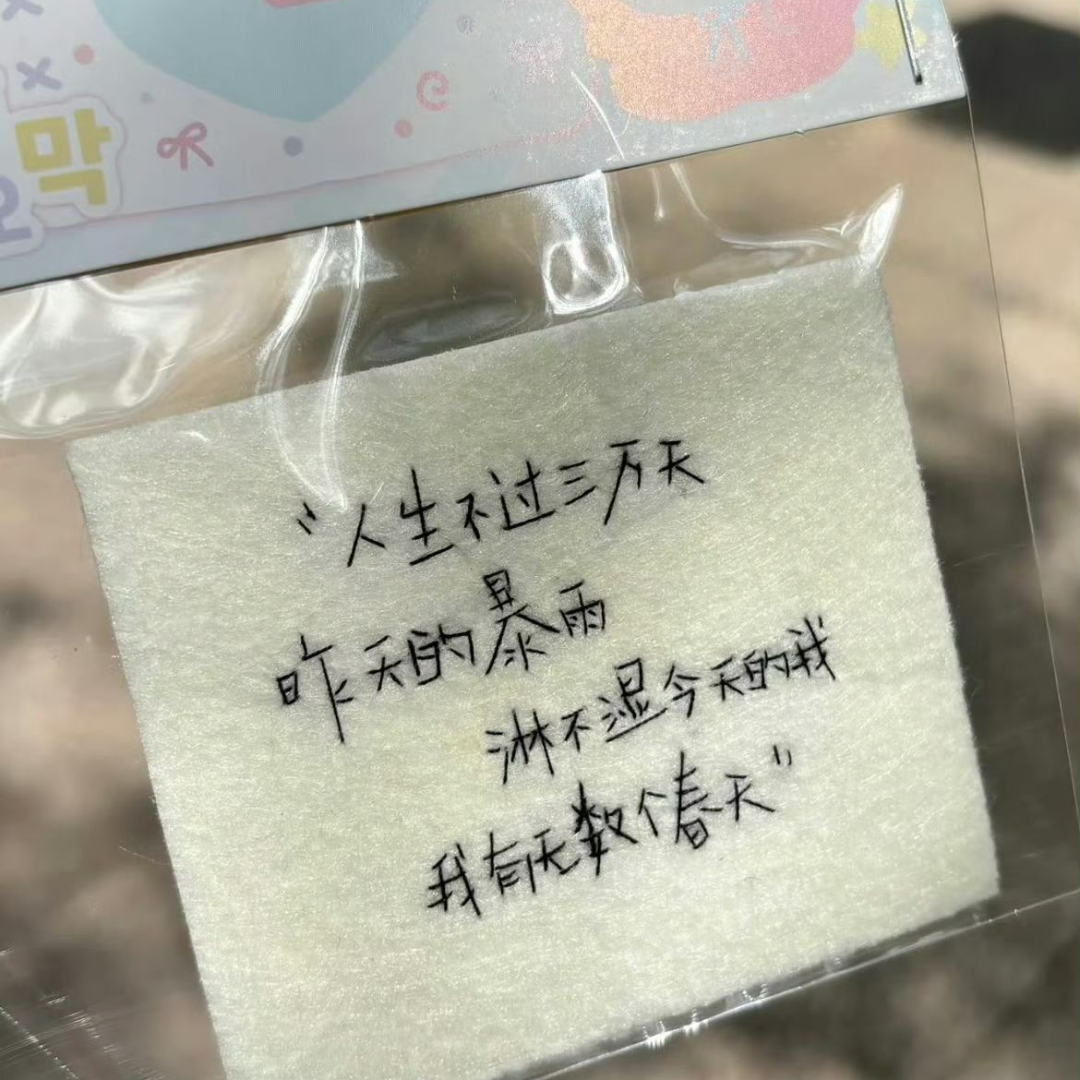 막
"人生不过三万天
昨天的暴雨
淋不湿今天的我
我有无数个春天"